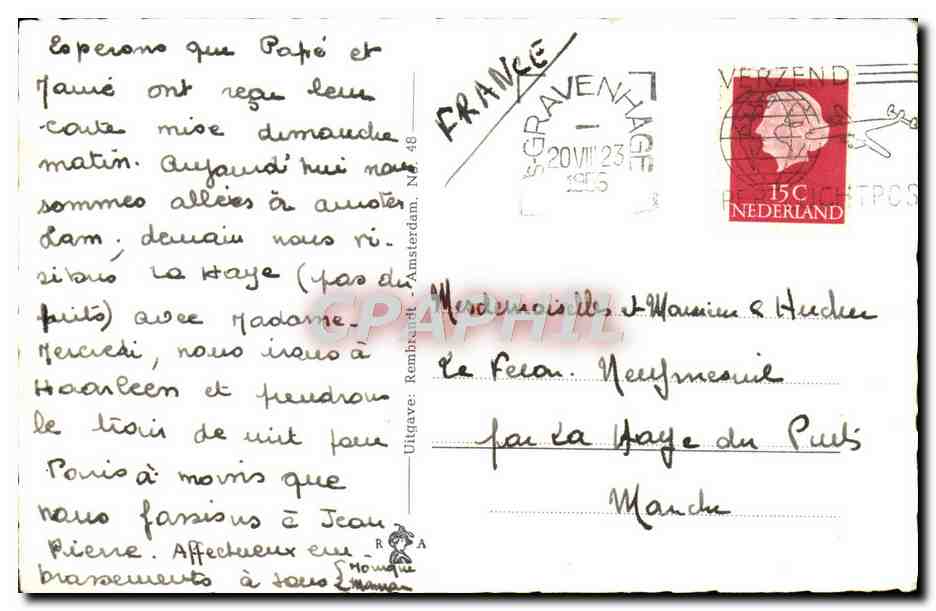 Esperons que Papé et
Mamé ont reçu leur
carte mise dimanche
matin. Aujourd'hui nous
sommes allées à Amster
dam, demain nous vi-
sitons La Haye (pas du
puits) avec Madame.
Mercredi, nous irons à
Haarleem et prendrons
le train de nuit pour
Paris à moins que
nous fassions à Jean
Pierre. Affectueux em-
brassements à tous
Monique
Maman
R A
Uitgave: Rembrandt - Amsterdam. No. 48
FRANCE
'S-GRAVENHAGE
20 VIII 23
1956
VERZEND
PER LUCHTPOS
15 C
NEDERLAND
CPAPHIL
Mesdemoiselles et Monsieur
Le Feron. Neufmesnil
par La Haye du Puits
Manche